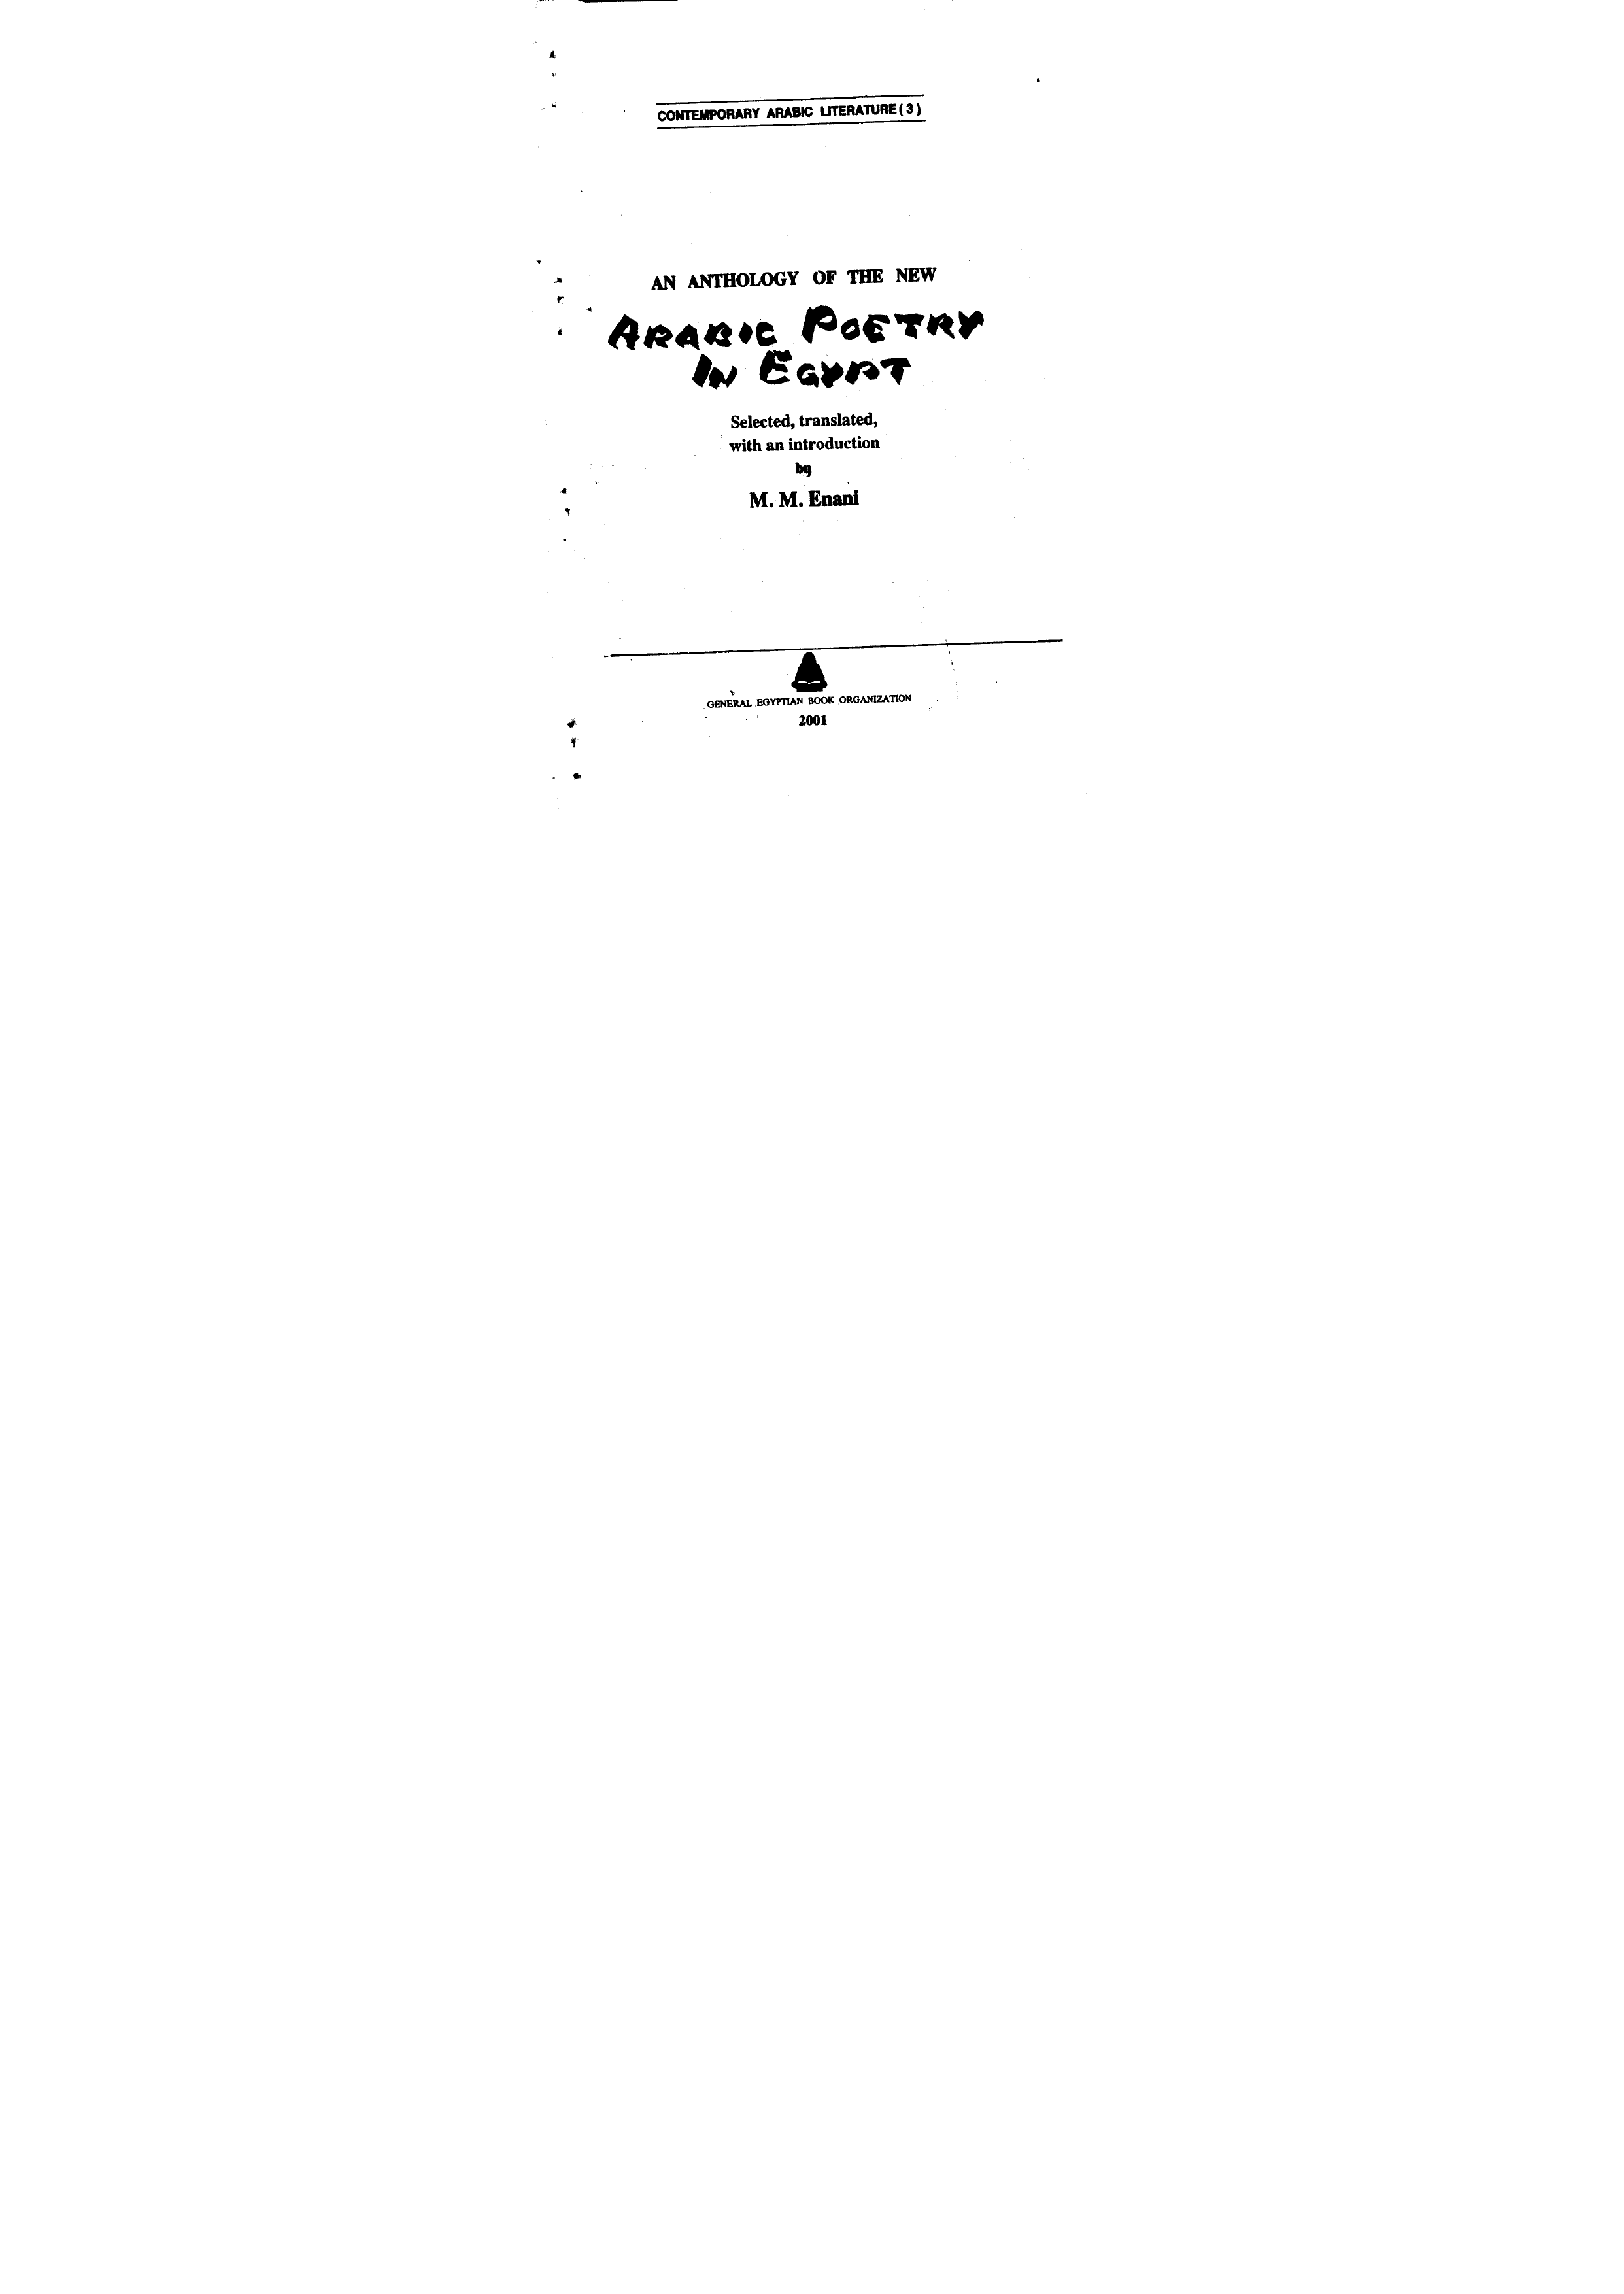 CONTEMPORARY ARABIC LITERATURE (3)
AN ANTHOLOGY OF THE NEW
ARABIC POETRY
IN EGYPT
Selected, translated,
with an introduction
by
M. M. Enani
GENERAL EGYPTIAN BOOK ORGANIZATION
2001